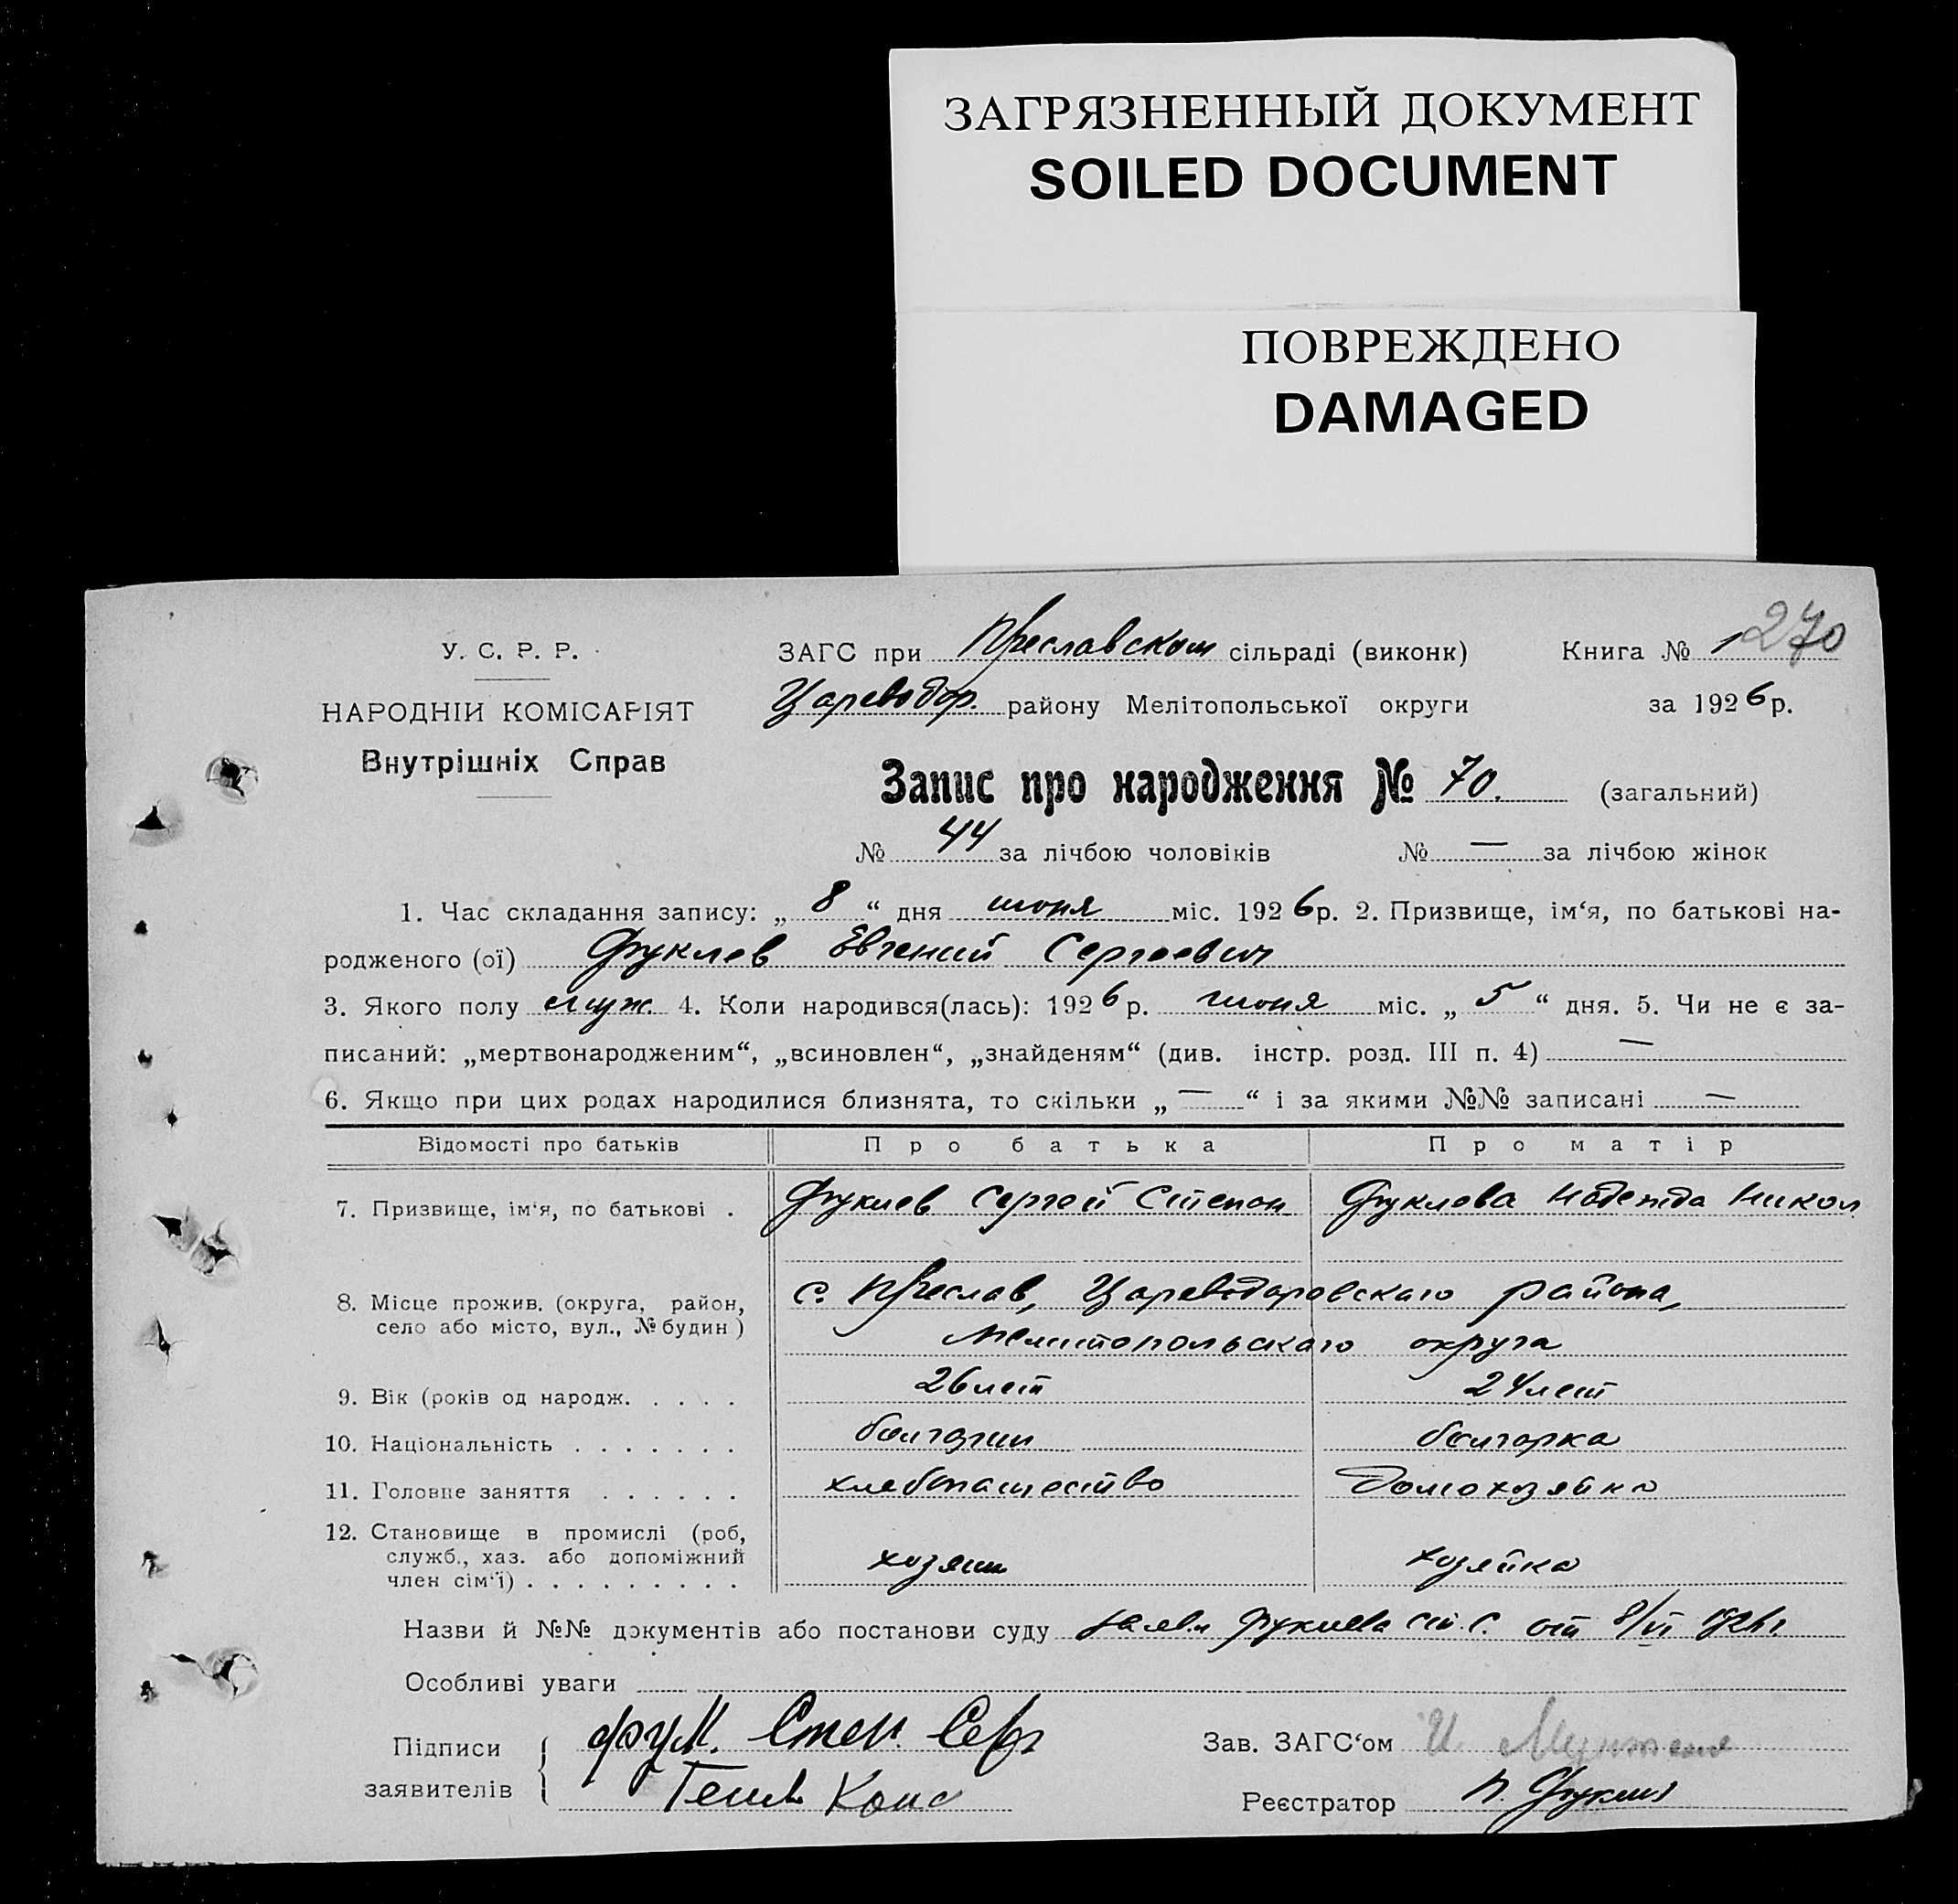 ЗАГРЯЗНЕННЫЙ ДОКУМЕНТ
SOILED DOCUMENT
ПОВРЕЖДЕНО
DAMAGED
270
У. С. Р. Р. ЗАГС при Преславском сільраді (виконк) Книга № 1
НАРОДНІЙ КОМІСАРІЯТ Цареводар. району Мелітопольської округи за 1926 р.
Внутрішніх Справ
Запис про народження № 70. (загальний)
№ 44 за лічбою чоловіків № — за лічбою жінок
1. Час складання запису: „ 8 “ дня июня міс. 1926 р. 2. Призвище, ім‘я, по батькові на-
родженого (ої) Фуклев Евгений Сергеевич
3. Якого полу муж. 4. Коли народився(лась): 1926 р. июня міс. „ 5 “ дня. 5. Чи не є за-
писаний: „мертвонародженим“, „всиновлен“, „знайденям“ (див. інстр. розд. III п. 4) —
6. Якщо при цих родах народилися близнята, то скільки „ — “ і за якими №№ записані —
Відомості про батьків Про батька Про матір
7. Призвище, ім‘я, по батькові . Фуклев Сергей Степан Фуклева Надежда Никол
8. Місце прожив. (округа, район, с. Преслав, Цареводаровскаго района,
село або місто, вул., № будин) Мелитопольскаго округа
9. Вік (років од народж. . . . . 26 лет 24 лет
10. Національність . . . . . . . болгарин болгарка
11. Головне заняття . . . . . . хлебопашество Домохозяйка
12. Становище в промислі (роб,
служб., хаз. або допоміжний хозяин хозяйка
член сім‘ї) . . . . . . . . .
Назви й №№ документів або постанови суду Заявл Фуклева Ст. С. от 8/VI 1926 г.
Особливі уваги
Підписи Фук. Степ. Сер Зав. ЗАГС‘ом И.
заявителів Конс Реєстратор